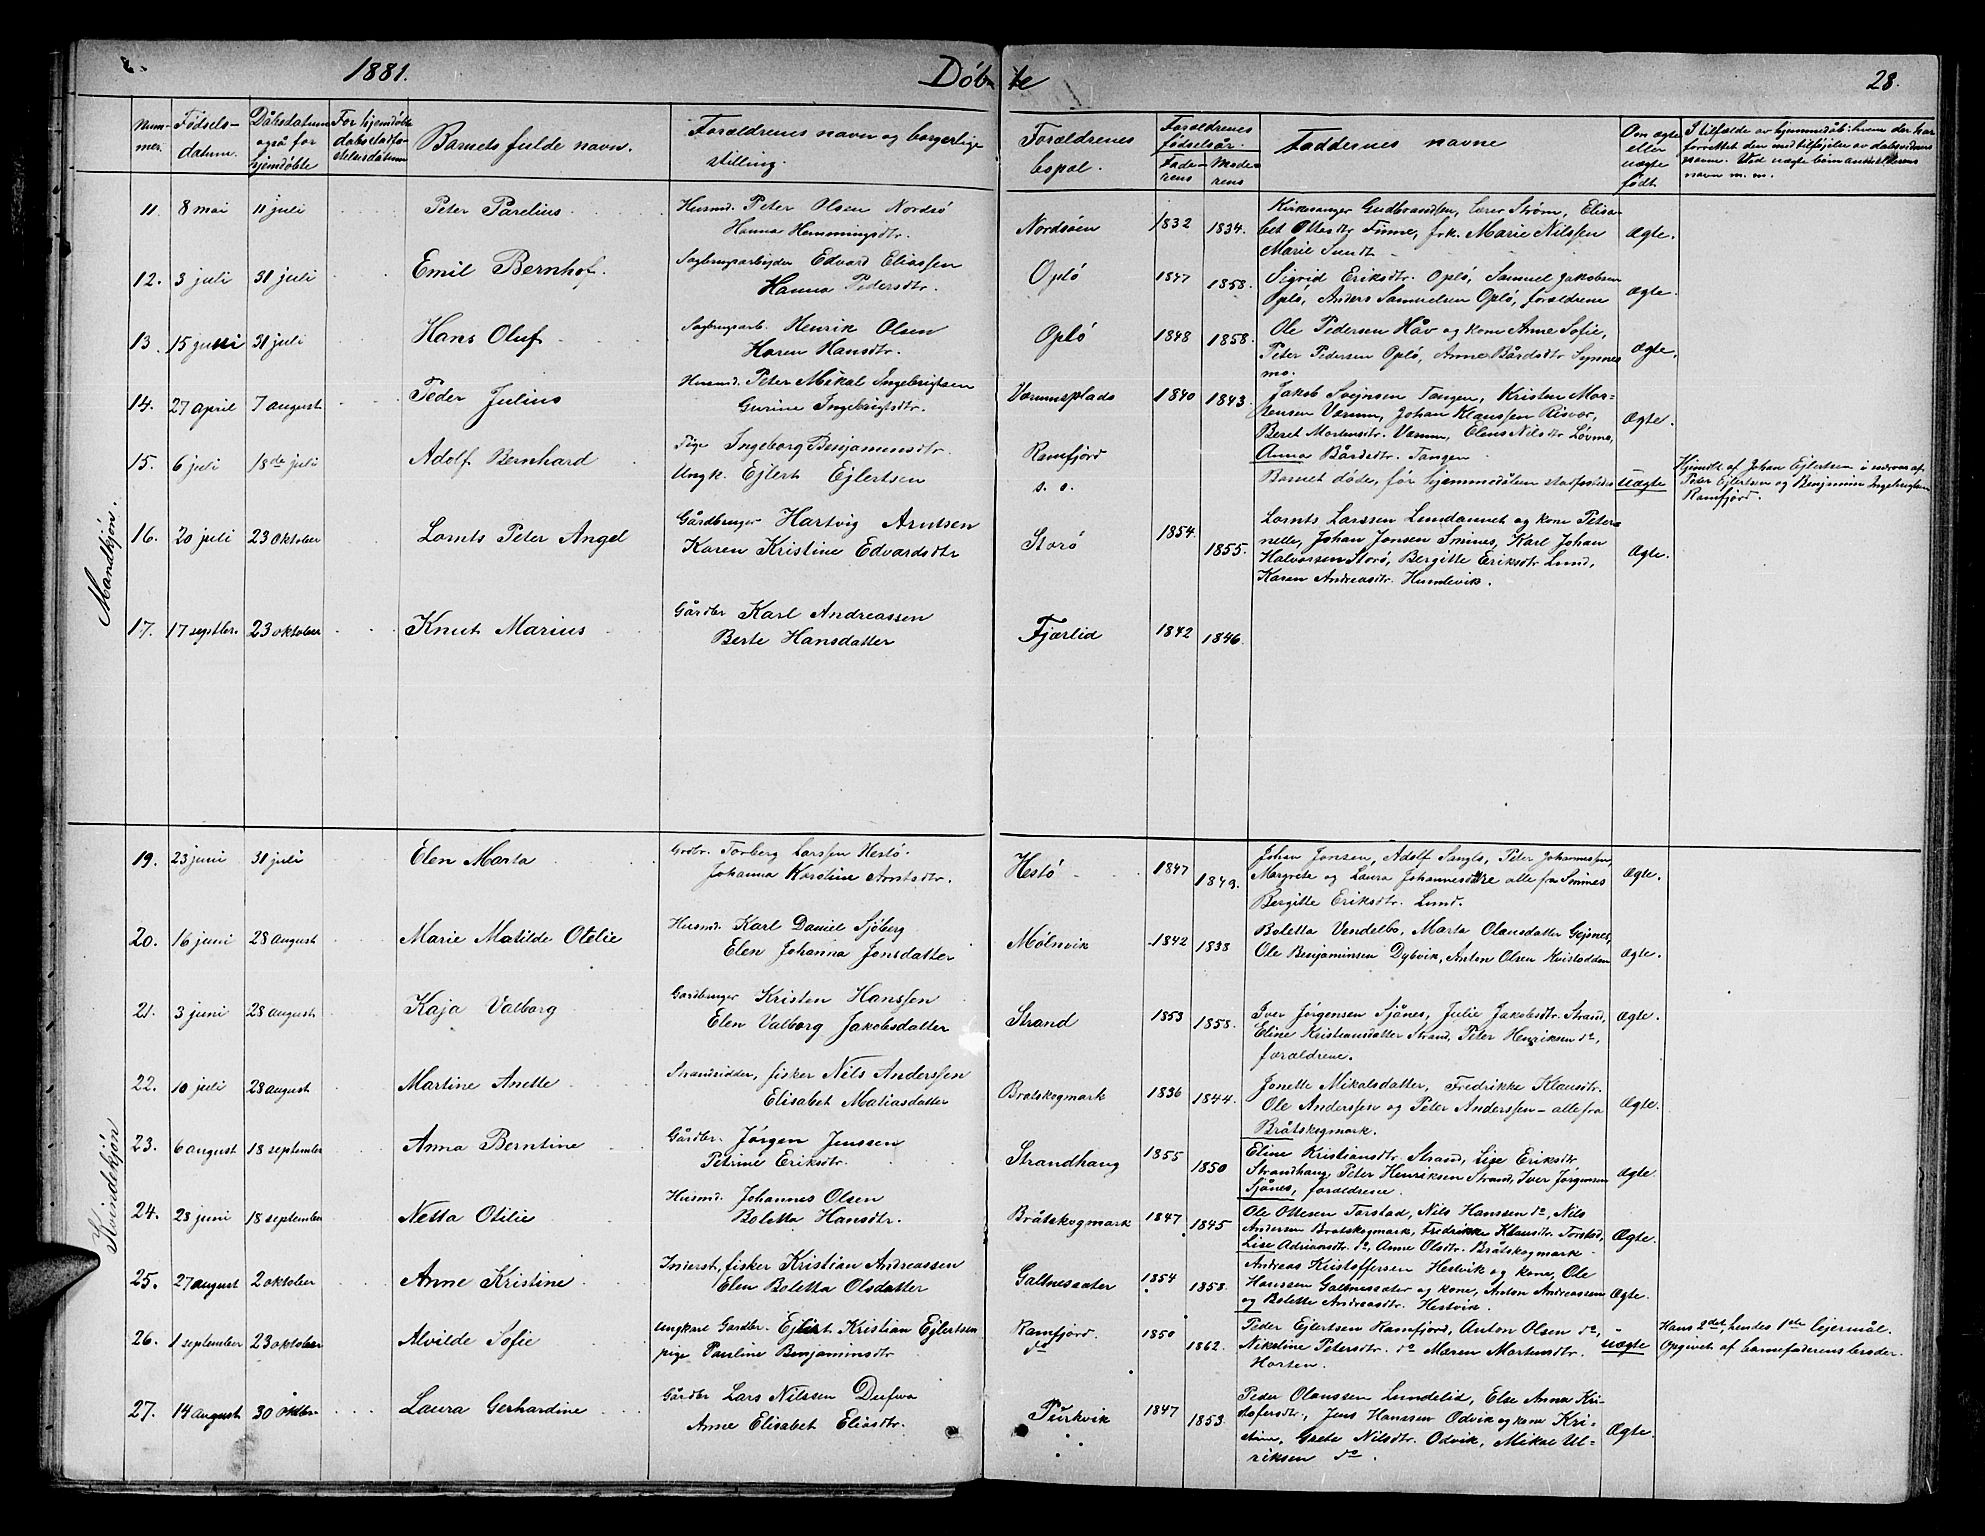 1881.
Døbte
28.
Num-
mer.
Fødsels-
datum.
Dåbsdatum
også for
hjemdøbte
For hjemdøbte
dabsstadfæ-
stelsesdatum
Barnets fulde navn.
Forældrenes navn og borgerlige
stilling.
Forældrenes
bopæl.
Forældrenes
fødselsår.
Fade-
rens
Mode-
rens
Faddernes navne
Om ægte
eller
uægte
født.
I tilfælde av hjemmedåb: hvem der har
forrettet den med tilføjelse av dabsvidnernes
navne. Ved uægte børn
navn m. m.
Mandkjøn.
11. 8 mai 11 juli Peter Parelius Husmd. Peter Olsen Nordsö
Hanna Hemmingsdtr.
Nordsöen 1832 1834.
Kirkesanger Gudbrandsen, lærer Strøm, Elisa-
bet Ottesdtr Finne, frk. Marie Nilssen
Marie Sundt
Ægte.
12. 3 juli 31 juli Emil Bernhof. Sagbrugsarbejder Edvard Eliassen
Hanna Pedersdtr.
Oplö 1847 1858.
Sigrid Eriksdtr. Oplö, Samuel Jakobsen
Oplö, Anders Samuelsen Oplö, forældrene
Ægte.
13. 15 juni 31 juli Hans Oluf Sagbrugsarb. Henrik Olsen
Karen Hansdtr.
Oplö 1848 1858.
Ole Pedersen Håv og kone Anne Sofie,
Peter Pedersen Oplö, Anne Bårdsdtr Synnes
mo.
Ægte.
14. 27 april 7 august Peder Julius Husmd. Peter Mikal Ingebrigtsen
Gurine Ingebrigtsdtr.
Værumsplads 1840 1843.
Jakob Svejnsen Tangen, Kristen Mor-
tensen Værum, Johan Klaussen Risvær,
Beret Mortensdtr. Værum, Elens Nilsdtr Løvmo,
Anna Bårdsdtr. Tangen
Ægte.
15. 6 juli 18de juli Adolf Bernhard Pige Ingeborg Benjaminsdtr.
Ungk. Ejlert Ejlertsen
Ramfjord
s. s.
Barnet døde, før hjemmedåben stadfæstedes
uægte
Hjemdt. af Johan Ejlertsen i nærvær af
Peter Ejlertsen og Benjamin Ingebrigtsen
Ramfjord.
16. 20 juli 23 Oktober Lornts Peter Angel Gårdbruger Hartvig Arntsen
Karen Kristine Edvardsdtr
Storö 1854. 1855.
Lornts Larssen Lundannet og kone Peter-
nelle, Johan Jonsen Smines, Karl Johan
Halvorsen Storö, Bergitte Eriksdtr Lund,
Karen Andreasdtr. Humlevik.
Ægte.
17. 17 septbr. 23 oktober Knut Marius Gårdbr Karl Andreassen
Berte Hansdatter
Fjærlid 1842 1846.
Kvindekjøn
19. 23 juni 31 juli Elen Marta Grdbr. Torberg Larssen Hestö.
Johanna Karoline Arntsdtr.
Hestö 1847 1849.
Johan Jonsen, Adolf Sangls, Peter Johannessen,
Margrete og Laura Johannesdtre alle fra Smines
Bergitte Eriksdtr. Lund.
Ægte.
20. 16 juni 28 august Marie Matilde Otelie Husmd. Karl Daniel Sjöberg
Elen Johanna Jonsdatter
Mölnvik 1842 1838
Boletta Vendelbo, Marta Olausdatter Gejsnes,
Ole Benjaminsen Dybvik, Anton Olsen Kvistadden
Ægte.
21. 3 juni 28 august Kaja Valborg Gardbruger Kristen Hanssen
Elen Valborg Jakobsdatter
Strand 1853 1858.
Iver Jørgensen Sjånes, Julie Jakobsdtr. Strand,
Eline Kristiansdatter Strand, Peter Henriksen do,
forældrene.
Ægte.
22. 10 juli 28 august Martine Anette Strandsidder, fisker Nils Anderssen
Elisabet Matiasdatter
Bratskogmark 1836 1844.
Jonette Mikalsdatter, Fredrikke Klausdtr.
Ole Anderssen og Peter Anderssen - alle fra
Bråtskogmark.
Ægte.
23. 6 august 18 september Anna Berntine Gårdbr. Jörgen Jenssen
Petrine Eriksdtr.
Strandhaug 1855 1850
Eline Kristiansdtr. Strand, Lise Eriksdtr
Strandhaug, Peter Henriksen Strand, Iver Jørgensen
Sjånes, forældrene.
Ægte.
24. 23 juni 18 september Netta Otilie Husmd. Johannes Olsen
Boletta Hansdtr.
Bråtskogmark 1847 1845
Ole Ottesen Torstad, Nils Hanssen do, Nils
Andersen Bratskogmark, Fredrikke Klausdtr. Torstad,
Lise Adriansdtr. do, Anne Olsdtr. Bråtskogmark
Ægte.
25. 27 august 2 oktober Anne Kristine Inderst, fisker Kristian Andreassen
Elen Boletta Olsdatter
Galtnessæter 1854 1858.
Andreas Kristoffersen Hestvik og kone, Ole
Hanssen Galtnessæter og kone, Anton Andreassen
og Bolette Andreasdtr. Hestvik.
Ægte.
26. 1 september 23 oktober Alvilde Sofie Ungkarl Gardbr. Ejlert Kristian Ejlertsen
pige Pauline Benjaminsdtr
Ramfjord. do 1850 1862.
Peder Ejlertsen Ramfjord, Anton Olsen do,
Nikoline Petersdtr. do Maren Martensdtr.
Horten.
uægte
Hans 2det, hendes 1ste lejermål.
Opgivet af barnefaderens broder.
27. 14 august 30 oktbr. Laura Gerhardine Gårdbr Lars Nilssen Dufva
Anne Elisabet Eliasdtr.
Purkvik 1847 1853.
Peder Olaussen Lundelid, Else Anna Kri-
stofersdtr., Jens Hanssen Odvik og kone Kri-
stine, Greta Nilsdtr. Odvik, Mikal Ul-
riksen do.
Ægte.